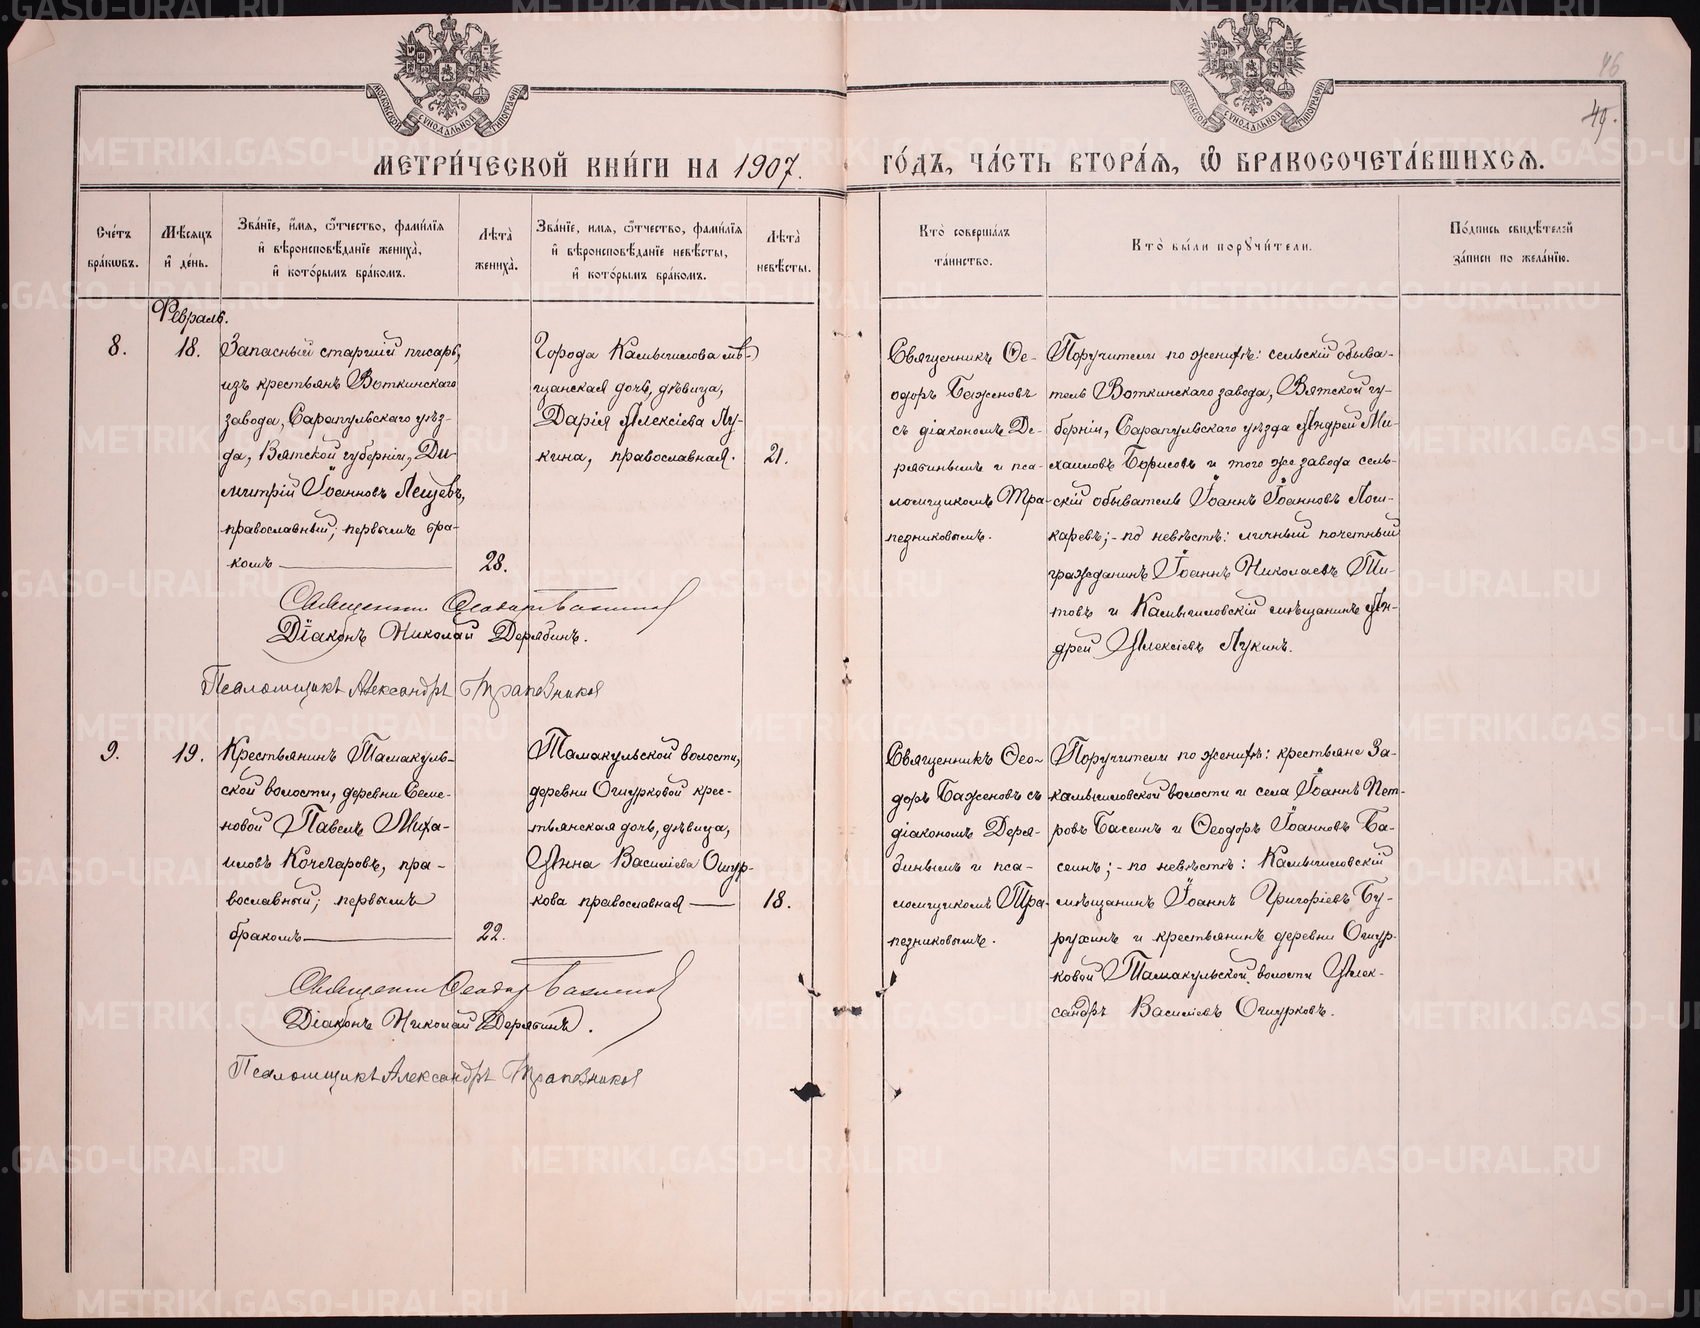 МОСКОВСКОЙ СѴНОДАЛЬНОЙ ТИПОГРАФІИ
МОСКОВСКОЙ СѴНОДАЛЬНОЙ ТИПОГРАФІИ
46
49.
МЕТРИ́ЧЕСКОЙ КНИ́ГИ НА 1907. ГО́ДЪ, ЧА́СТЬ ВТОРА́Я, Ѡ҆ БРАКОСОЧЕТА́ВШИХСЯ.
Сче́тъ
бра́кѡвъ.
Мѣ́сяцъ
и҆ де́нь.
Зва́нїе, и҆́мя, ѻ҆́тчество, фамѝлїя
и҆ вѣроисповѣ́данїе жениха̀,
и҆ кото́рымъ бра́комъ.
Лѣта̀
жениха̀.
Зва́нїе, имя, ѻ҆́тчество, фамѝлїя
и҆ вѣроисповѣ́данїе невѣ́сты,
и҆ кото́рымъ бра́комъ.
Лѣта̀
невѣ́сты.
Кто̀ соверша́лъ
та́инство.
Кто̀ бы́ли порꙋчи́тели.
По́дпись свидѣ́телей
за́писи по жела́нїю.
Февраль.
8.
18.
Запасный старшій писарь,
изъ крестьянъ Воткинскаго
завода, Сарапульскаго уѣз-
да, Вятской губерніи, Ди-
митрій Іоанновъ Лещевъ,
православный; первымъ бра-
комъ
28.
Города Камышлова мѣ-
щанская дочь, дѣвица,
Дарія Алексіева Лу-
кина, православная.
21.
Священникъ Ѳе-
одоръ Баженовъ
съ діакономъ Де-
рябинымъ и пса-
ломщикомъ Тра-
пезниковымъ.
Поручители по женихѣ: сельскій обыва-
тель Воткинскаго завода, Вятской гу-
берніи, Сарапульскаго уѣзда Андрей Ми-
хаиловъ Борисовъ и того же завода сель-
скій обыватель Іоаннъ Іоанновъ Лош-
каревъ; - по невѣстѣ: личный почетный
гражданинъ Іоаннъ Николаевъ Ти-
товъ и Камышловскій мѣщанинъ Ан-
дрей Алексіевъ Лукинъ.
Священникъ Ѳеодоръ Баженовъ
Діаконъ Николай Дерябинъ.
Псаломщикъ Александръ Трапезниковъ
9.
19.
Крестьянинъ Тамакуль-
ской волости, деревни Семе-
новой Павелъ Миха-
иловъ Кочегаровъ, пра-
вославный; первымъ
бракомъ
22.
Тамакульской волости,
деревни Ошурковой крес-
тьянская дочь, дѣвица,
Анна Василіева Ошур-
кова православная
18.
Священникъ Ѳео-
доръ Баженовъ съ
діакономъ Деря-
бинымъ и пса-
ломщикомъ Тра-
пезниковымъ.
Поручители по женихѣ: крестьяне За-
камышловской волости и села Іоаннъ Пет-
ровъ Басинъ и Ѳеодоръ Іоанновъ Ба-
синъ; - по невѣстѣ: Камышловскій
мѣщанинъ Іоаннъ Григоріевъ Бу-
рухинъ и крестьянинъ деревни Ошур-
ковой Тамакульской волости Алек-
сандръ Василіевъ Ошурковъ.
Священникъ Ѳеодоръ Баженовъ
Діаконъ Николай Дерябинъ.
Псаломщикъ Александръ Трапезниковъ
METRIKI.GASO-URAL.RU